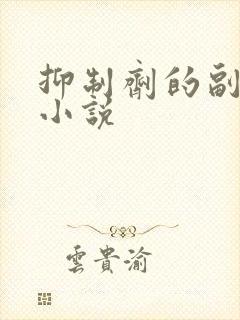 抑制劑的副
小說
雲貴渝